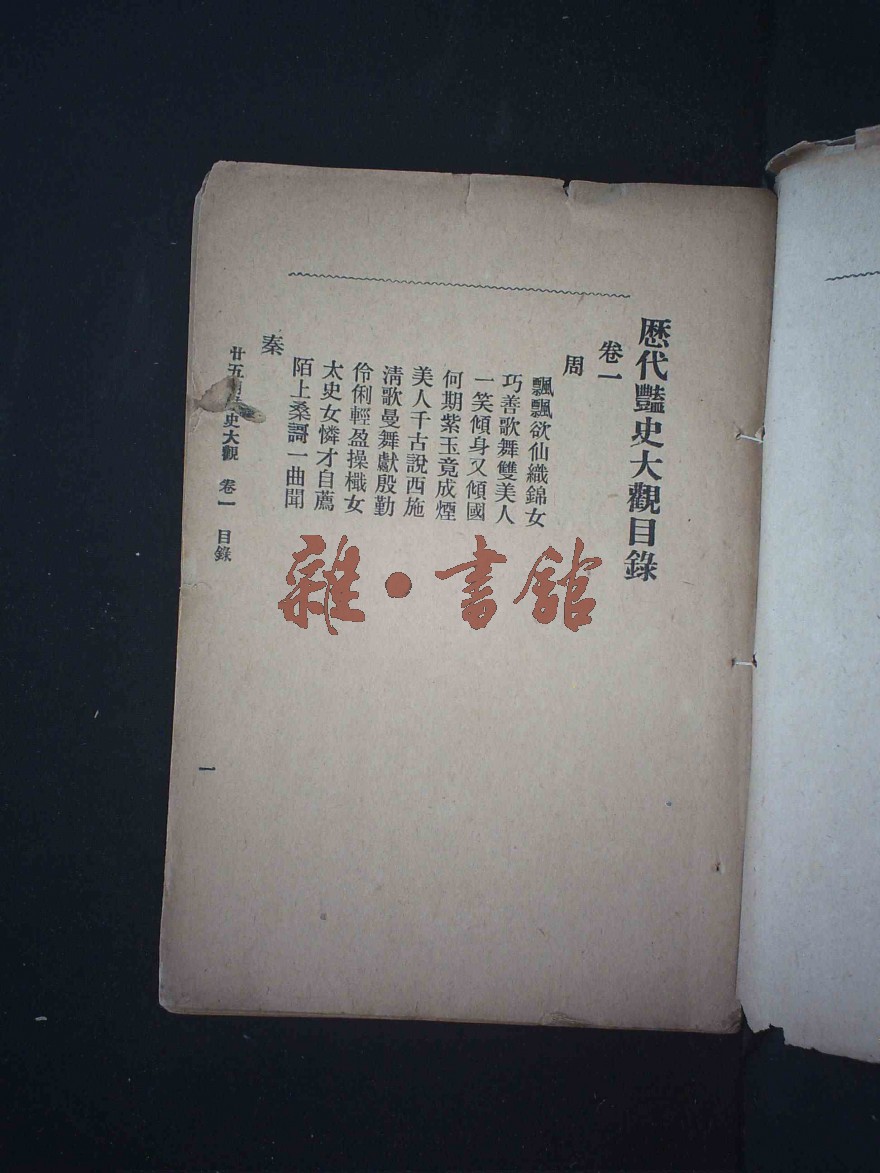 歷代豔史大觀目錄
卷一
周
飄飄欲仙織錦女
巧善歌舞雙美人
一笑傾身又傾國
何期紫玉竟成煙
美人千古說西施
淸歌曼舞獻殷勤
伶俐輕盈操檝女
太史女憐才自薦
陌上桑謌一曲聞
秦
廿五 史大觀 卷一 目錄
一
雜·書館